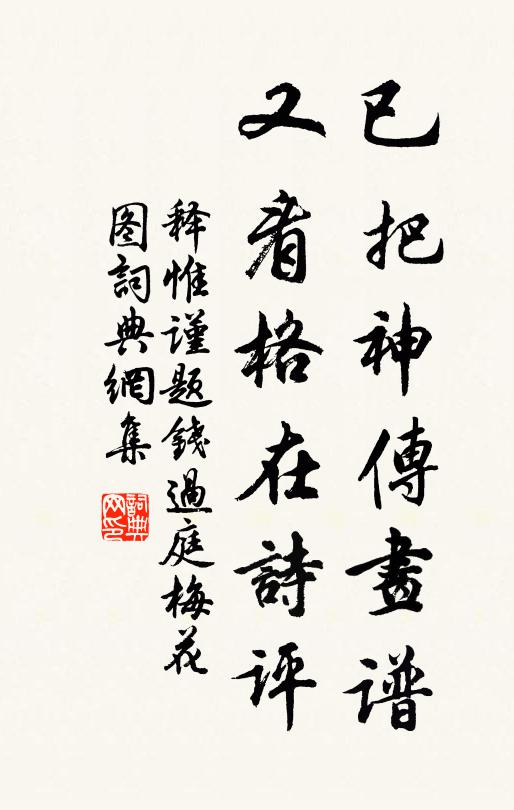 已把神傳畫谱
又看格在詩评
释惟谨题錢過庭梅花
图詞典網集
詞典网印